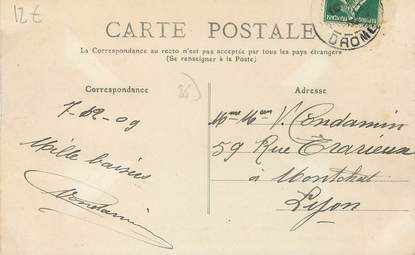 12 €
CARTE POSTALE
La Correspondance au recto n'est pas acceptée par tous les pays étrangers
(Se renseigner à la Poste)
DROME
Correspondance
Adresse
7-12-09
Mille baisers
Condamin
V. Condamin
59 Rue
à Montchat
Lyon